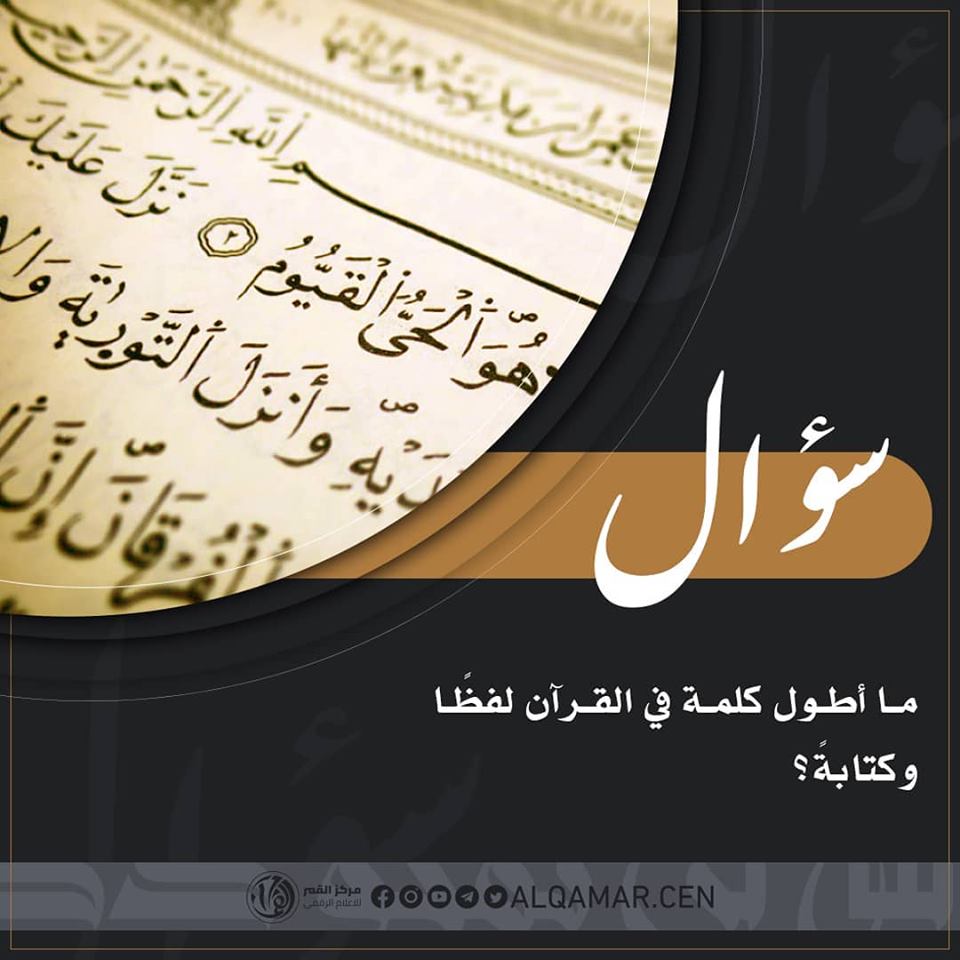 بسم ٱللَّهِ ٱلرَّحْمَٰنِ ٱلرَّحِيمِ
هُوَ ٱلْحَىُّ ٱلْقَيُّومُ ٢ نَزَّلَ عَلَيْكَ
يَدَيْهِ وَأَنزَلَ ٱلتَّوْرَىٰةَ وَٱلْإ
ٱلْفُرْقَانَ إِنَّ ٱل
سؤال
مـا أطـول كلمـة في القـرآن لفظًـا
وكتابةً؟
مركز القمر
للاعلام الرقمي
ALQAMAR.CEN